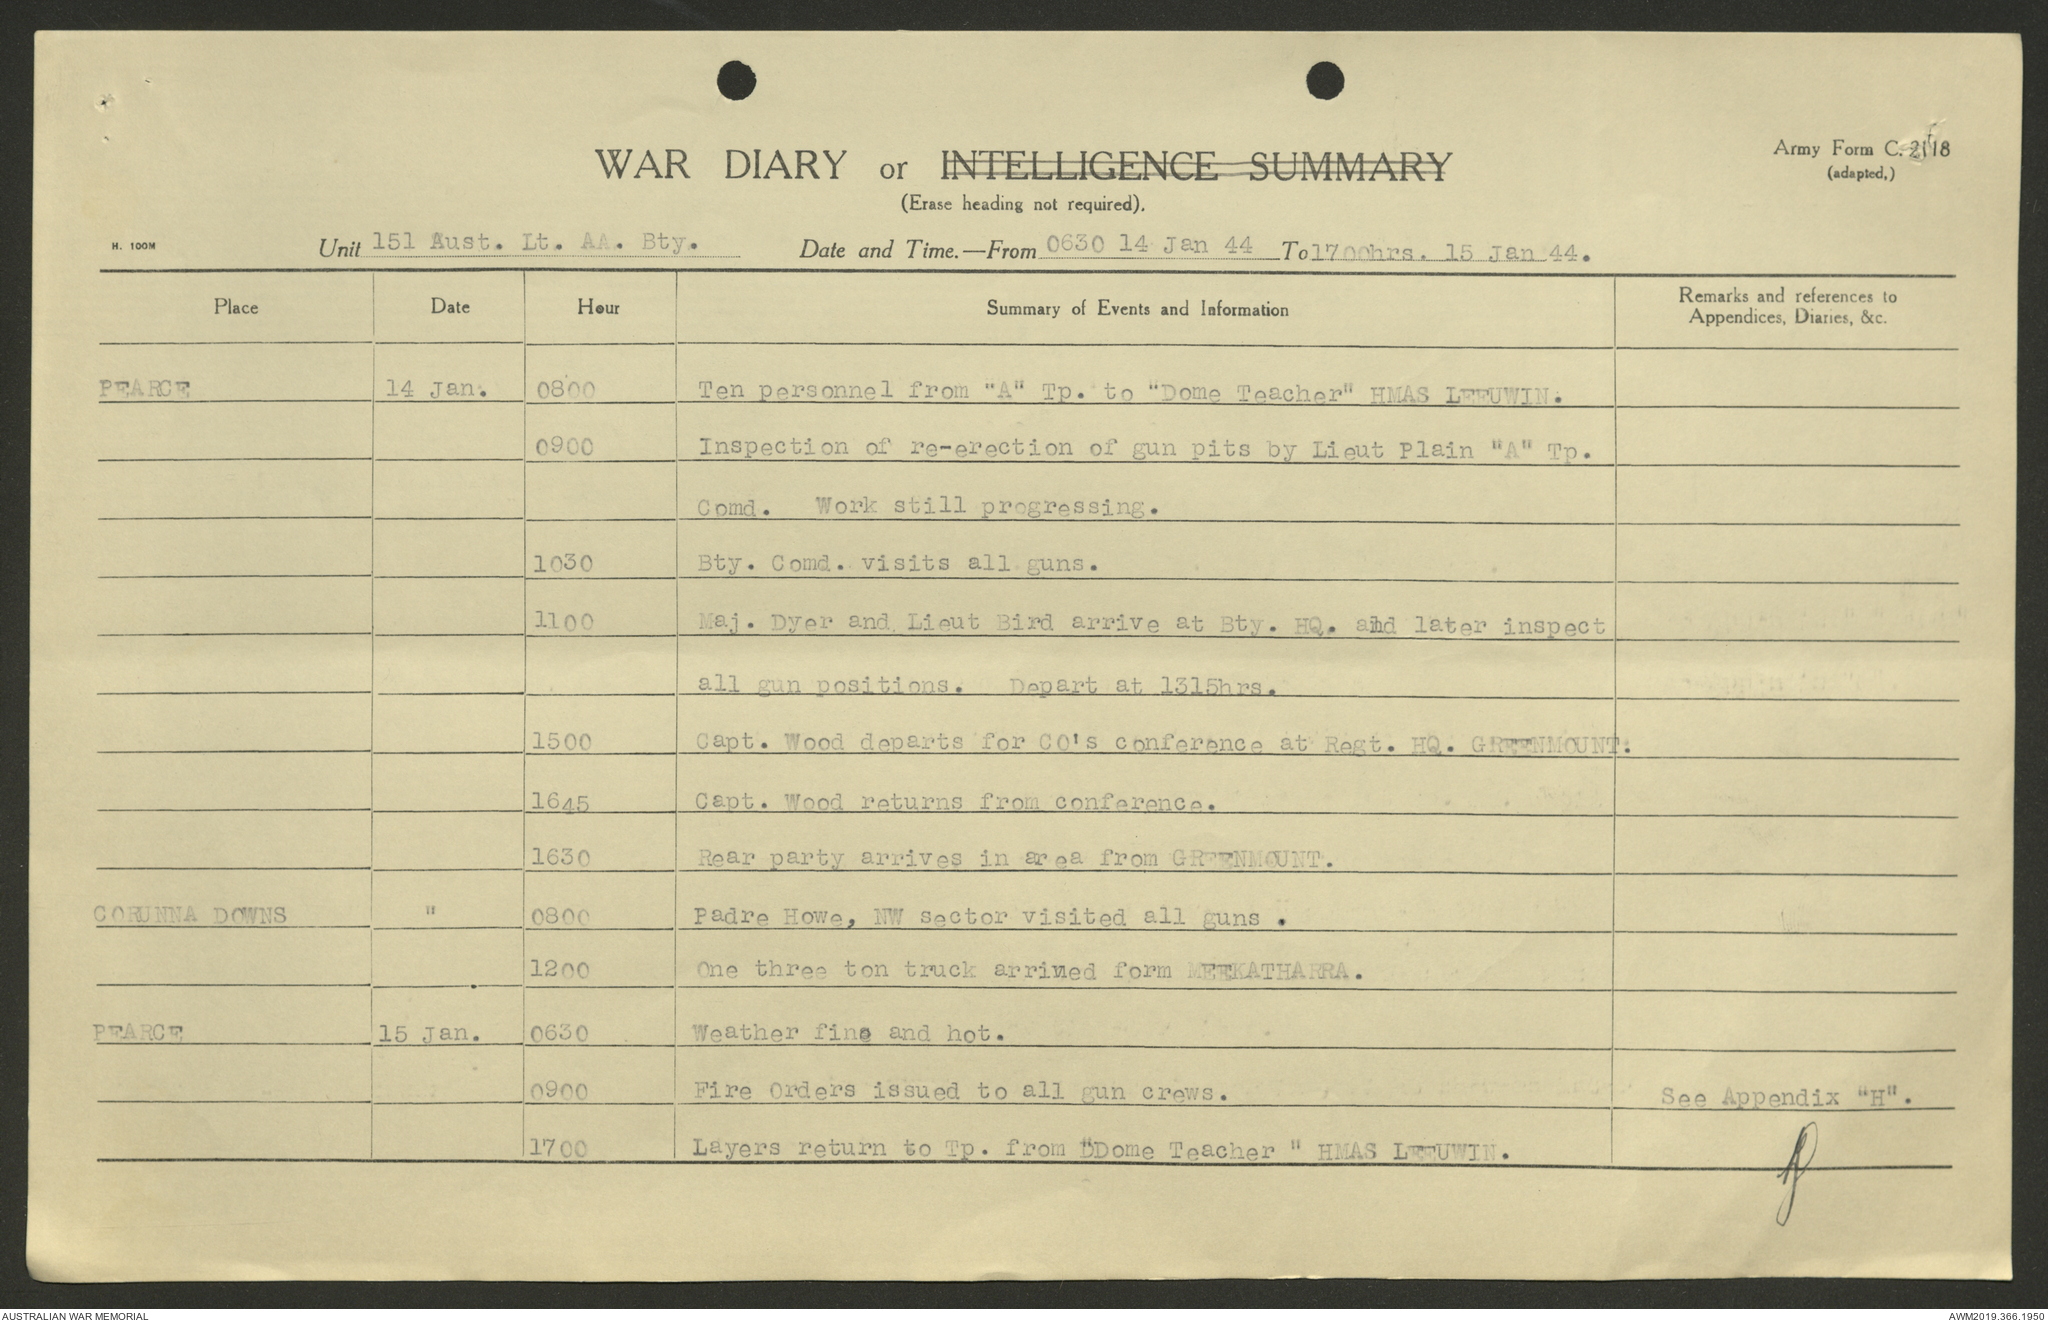 WAR DIARY or INTELLIGENCE SUMMARY
(Erase heading not required).
Army Form C. 2118
(adapted.)
H. 100M
Unit 151 Aust. Lt. AA. Bty. Date and Time.—From 0630 14 Jan 44 To 1700hrs. 15 Jan 44.
Place Date Hour Summary of Events and Information Remarks and references to
Appendices, Diaries, &c.
PEARCE 14 Jan. 0800 Ten personnel from "A" Tp. to "Dome Teacher" HMAS LEEUWIN.
0900 Inspection of re-erection of gun pits by Lieut Plain "A" Tp.
Comd. Work still progressing.
1030 Bty. Comd. visits all guns.
1100 Maj. Dyer and Lieut Bird arrive at Bty. HQ. and later inspect
all gun positions. Depart at 1315hrs.
1500 Capt. Wood departs for CO's conference at Regt. HQ. GREENMOUNT.
1645 Capt. Wood returns from conference.
1630 Rear party arrives in area from GREENMOUNT.
CORUNNA DOWNS " 0800 Padre Howe, NW sector visited all guns .
1200 One three ton truck arrived form MEEKATHARRA.
PEARCE 15 Jan. 0630 Weather fine and hot.
0900 Fire Orders issued to all gun crews. See Appendix "H".
1700 Layers return to Tp. from "Dome Teacher " HMAS LEEUWIN.
AUSTRALIAN WAR MEMORIAL
AWM2019.366.1950